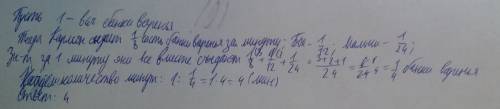 Пусть 1 - вся банка варенья
Тогда Карлсон съест 1/8 часть банки варенья за минуту; Бос - 1/12; Малыш - 1/24;
За 1 минуту они все вместе съедают 1/8 + 1/12 + 1/24 = 3+2+1/24 = 6/24 = 1/4 банки варенья
количество минут: 1: 1/4 = 1·4 = 4 (мин)
Ответ: 4